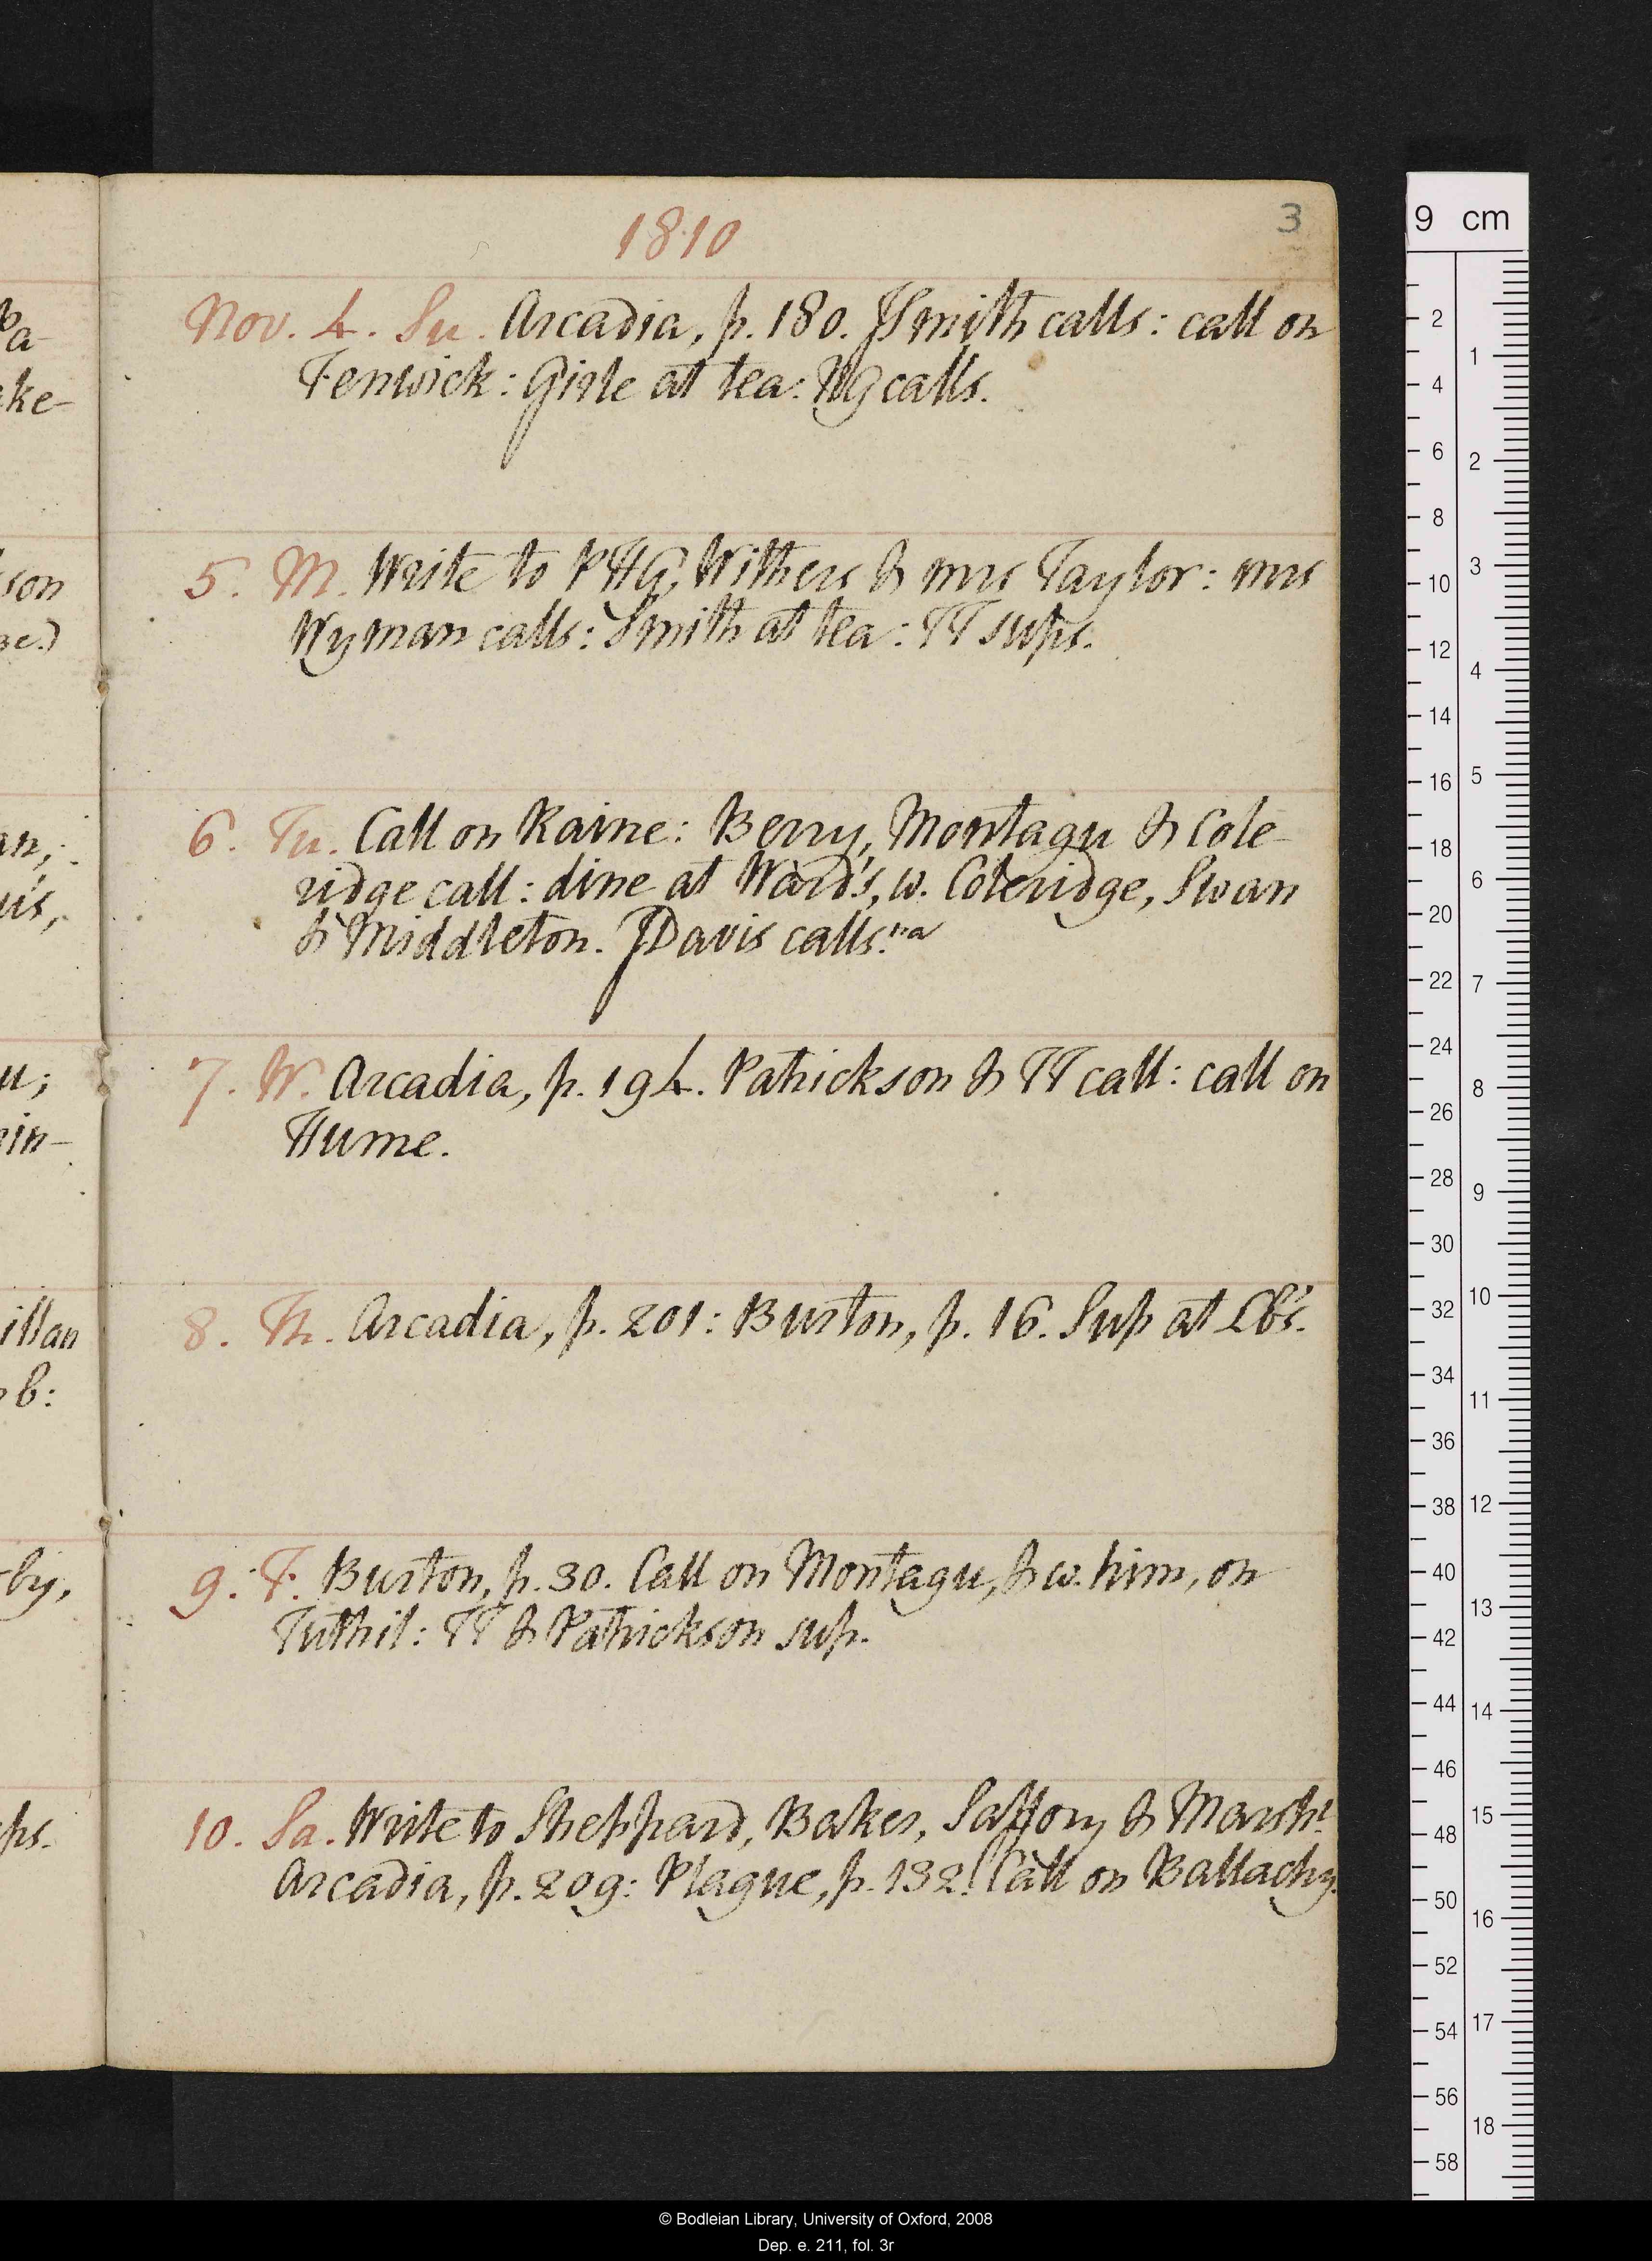 1810
3
Nov. 4. Su. Arcadia, p. 180. JSmith calls: call on
Fenwick: Girle at tea: NG calls.
5. M. Write to PHG, Withers & mrs Taylor: mrs
Wyman calls: Smith at tea: TT sups.
6. Tu. Call on Raine: Berry, Montagu & Cole-
ridge call: dine at Ward's, w. Coleridge, Swan
& Middleton. JDavis calls. na
7. W. Arcadia, p. 194. Patrickson & TT call: call on
Hume.
8. Th. Arcadia, p. 201: Burton, p. 16. Sup at Lb's.
9. F. Burton, p. 30. Call on Montagu, & w. him, on
Tuthil: TT & Patrickson sup.
10. Sa. Write to Sheppard, Baker, Saffory & Marsht.
Arcadia, p. 209: Plague, p. 132. Call on Ballachy.
Pa-
ke-
son
ge.)
an;
u;
in-
illan
b:
by,
ps.
9 cm
2
4
6
8
10
12
14
16
18
20
22
24
26
28
30
32
34
36
38
40
42
44
46
48
50
52
54
56
58
1
2
3
4
5
6
7
8
9
10
11
12
13
14
15
16
17
18
© Bodleian Library, University of Oxford, 2008
Dep. e. 211, fol. 3r